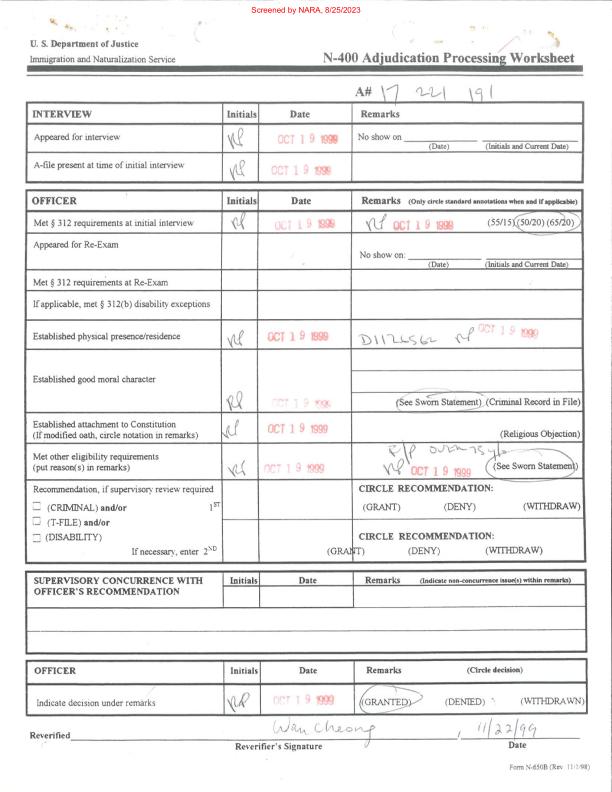 Screened by NARA, 8/25/2023
U. S. Department of Justice
Immigration and Naturalization Service
N-400 Adjudication Processing Worksheet
A# 17 221 191
INTERVIEW Initials Date Remarks
Appeared for interview OCT 19 1999 No show on
(Date) (Initials and Current Date)
A-file present at time of initial interview OCT 19 1999
OFFICER Initials Date Remarks (Only circle standard annotations when and if applicable)
Met § 312 requirements at initial interview OCT 19 1999 OCT 19 1999 (55/15) (50/20) (65/20)
Appeared for Re-Exam
No show on:
(Date) (Initials and Current Date)
Met § 312 requirements at Re-Exam
If applicable, met § 312(b) disability exceptions
Established physical presence/residence OCT 19 1999 D1126562 OCT 19 1999
Established good moral character
OCT 19 1999 (See Sworn Statement) (Criminal Record in File)
Established attachment to Constitution OCT 19 1999
(If modified oath, circle notation in remarks) (Religious Objection)
Met other eligibility requirements
(put reason(s) in remarks) OCT 19 1999 OCT 19 1999 (See Sworn Statement)
Recommendation, if supervisory review required CIRCLE RECOMMENDATION:
(CRIMINAL) and/or 1ST (GRANT) (DENY) (WITHDRAW)
(T-FILE) and/or
(DISABILITY) CIRCLE RECOMMENDATION:
If necessary, enter 2ND (GRANT) (DENY) (WITHDRAW)
SUPERVISORY CONCURRENCE WITH Initials Date Remarks (Indicate non-concurrence issue(s) within remarks)
OFFICER'S RECOMMENDATION
OFFICER Initials Date Remarks (Circle decision)
Indicate decision under remarks OCT 19 1999 (GRANTED) (DENIED) (WITHDRAWN)
Reverified Wan Cheong, 11/22/99
Reverifier's Signature Date
Form N-650B (Rev. 11/1/98)